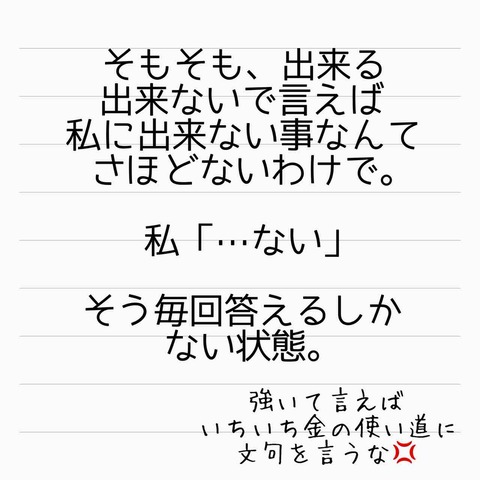 そもそも、出来る
出来ないで言えば
私に出来ない事なんて
さほどないわけで。
私「…ない」
そう毎回答えるしか
ない状態。
強いて言えば
いちいち金の使い道に
文句を言うな💢